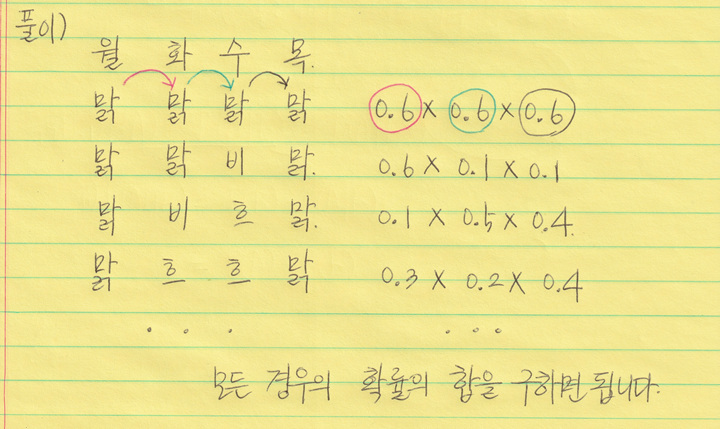 풀이)
월 화 수 목.
맑 맑 맑 맑 0.6 X 0.6 X 0.6
맑 맑 비 맑. 0.6 X 0.1 X 0.1
맑 비 흐 맑. 0.1 X 0.5 X 0.4.
맑 흐 흐 맑 0.3 X 0.2 X 0.4
. . . . . .
모든 경우의 확률의 합을 구하면 됩니다.